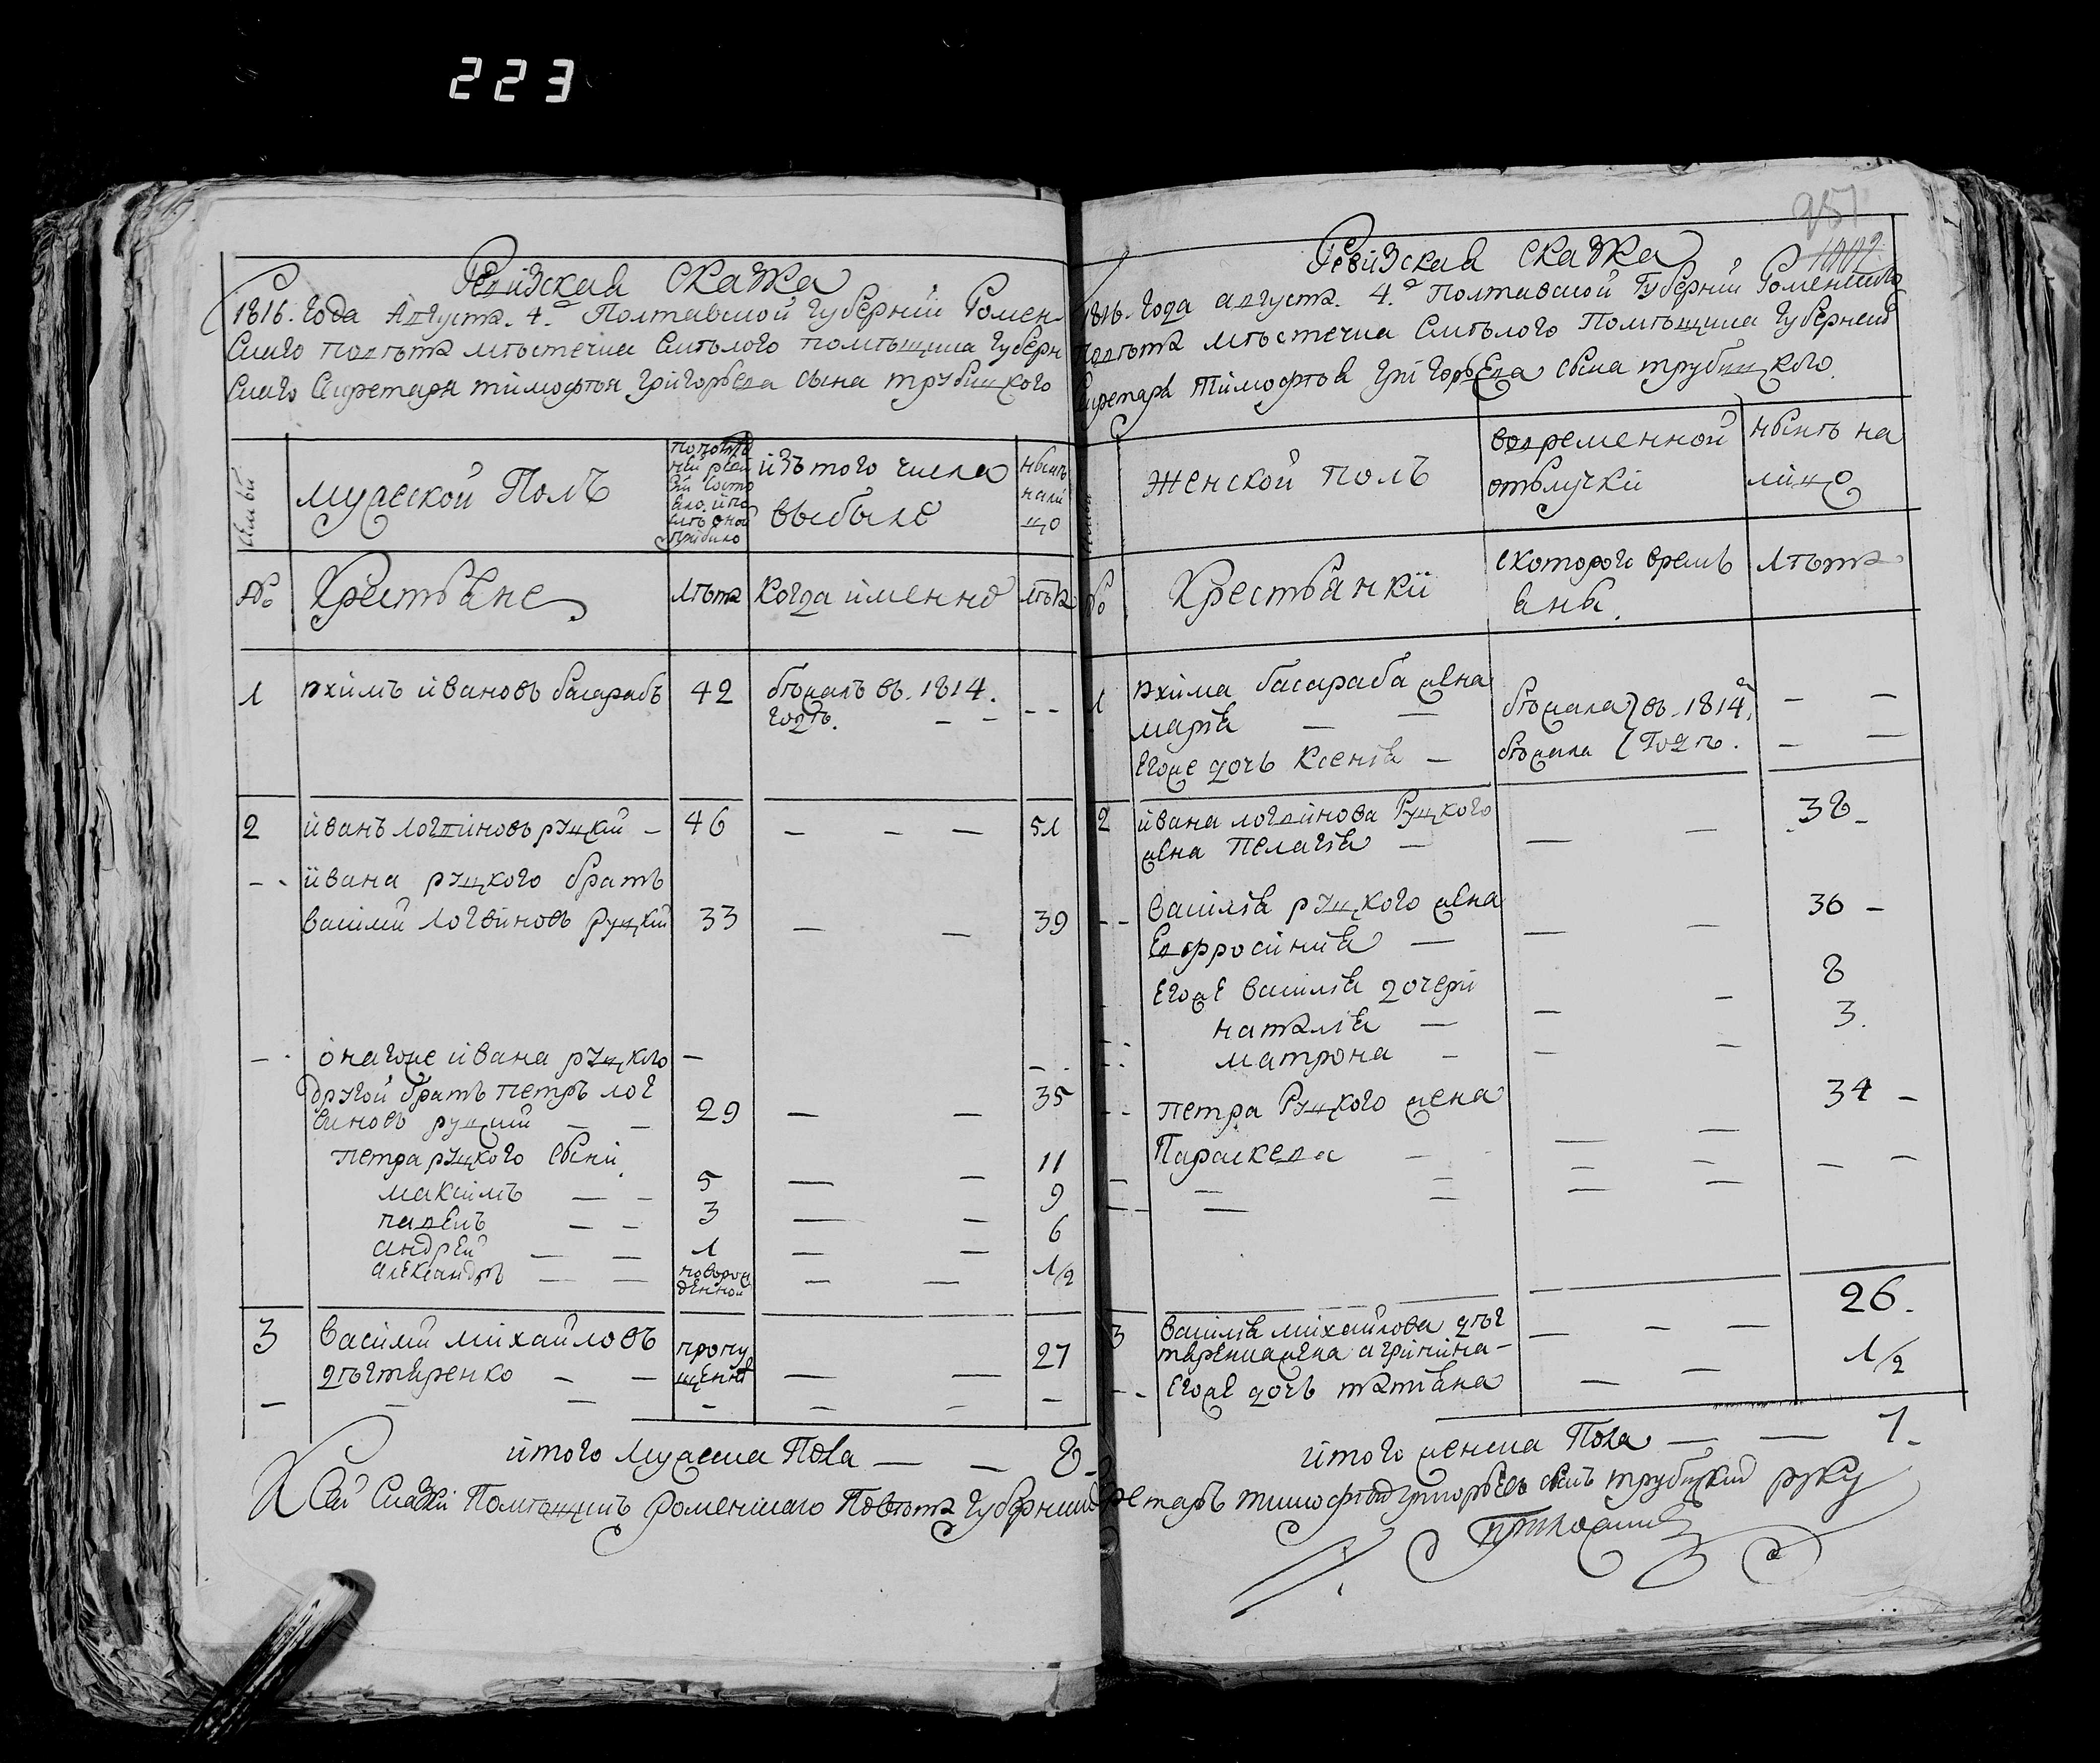 223
251
1002
Ревизская сказка
1816. Года августа. 4.го Полтавской Губернии Ромен
скаго поветта местечка Смелого помещика Губерн
скаго Секретаря тимофея григорьева сына трубицкого
семьи
мужеской Полъ
по последней ревизии состояло и после оной прибило
изъ того числа
выбыло
ныне
нали
цо
№
Крестьяне
лета
когда именно
лета
1 яхимъ ивановъ басарабъ 42 бежалъ въ. 1814.
годе. - - - -
2 иванъ логвиновъ руцкий - 46 — - — 51
- - ивана руцкого братъ
василий логвиновъ руцкий 33 — — 39
- - онагоже ивана руцкого —
другой братъ петръ лог
виновъ руцкий — — 29 — — 35
петра руцкого сыни
максимъ — — 5 — — 11
павелъ — — 3 — — 9
андрей — — 1 — — 6
александръ — — новорож
денной — — 1/2
3 василий михайловъ пропу
дегтяренко - — щенъ — — 27
итого мужеска Пола — — 8-
Ревизская сказка
1816. Года августа. 4.го Полтавской Губернии Роменскаго
поветта местечка Смелого Помещика Губернскаго
Секретаря Тимофея Григорьева сына трубицкого
женской полъ
во временной
отлучки
ныне на
лицо
№
Крестьянки
с которого времъ
яны.
лета
1 яхима басараба жена
мария — — бежала } въ. 1814го — —
Егоже дочь Ксения — бежала { Годе. — —
2 ивана логвинова Руцкого
жена Пелагия — — — 38-
- - василия руцкого жена
Евфросиния — — - 36 -
Егоже василия дочери
наталия — — - 8
матрона - — - 3.
- - петра Руцкого жена
Параскева - — — 34 -
3 василия михайлова дег
таренка жена агрипина- — - — 26.
- - Егоже дочь татияна — — 1/2
итого женска Пола — — 7-
К Сей Сказки Помещикъ роменскаго Поветта Губернский Секретарь тимофей григорьевъ сынъ трубицкий руку
приложилъ